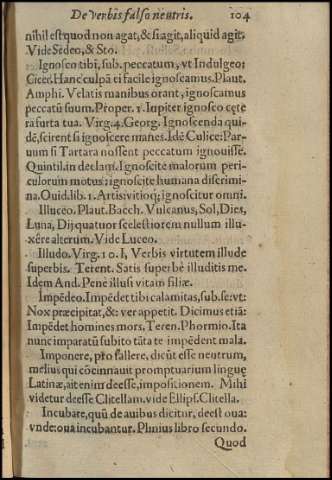 De verbis falso neutris. 104
nihil est quod non agat, & si agit, aliquid agit.
Vide Sedeo, & Sto.
Ignosco tibi, sub. peccatum, vt Indulgeo:
Cicer. Hanc culpā ei facile ignoscamus. Plaut.
Amphi. Velatis manibus orant, ignoscamus
peccatū suum. Proper. 1. Iupiter ignosco cęte
ra furta tua. Virg. 4. Georg. Ignoscenda qui-
dē, scirent si ignoscere manes. Idē Culice: Par-
uum si Tartara nossent peccatum ignouisse.
Quintil. in declam. Ignoscite malorum peri-
culorum motus: ignoscite humana discrimi-
na. Ouid. lib. 1. Artis: vitioq; ignoscitur omni.
Illuceo. Plaut. Bacch. Vulcanus, Sol, Dies,
Luna, Dij quatuor scelestiorem nullum illu-
xêre alterum. Vide Luceo.
Illudo. Virg. 10. I, Verbis virtutem illude
superbis. Terent. Satis superbè illuditis me.
Idem And. Penè illusi vitam filiæ.
Impēdeo. Impēdet tibi calamitas, sub. se: vt:
Nox præcipitat, &: ver appetit. Dicimus etiā:
Impēdet homines mors, Teren. Phormio. Ita
nunc imparatū subito tāta te impēdent mala.
Imponere, pro fallere, dicūt esse neutrum,
melius qui cōcinnauit promptuarium linguę
Latinæ, ait enim deesse, impositionem. Mihi
videtur deesse Clitellam. vide Ellips. Clitella.
Incubare, quū de auibus dicitur, deest oua:
vnde: oua incubantur. Plinius libro secundo.
Quod